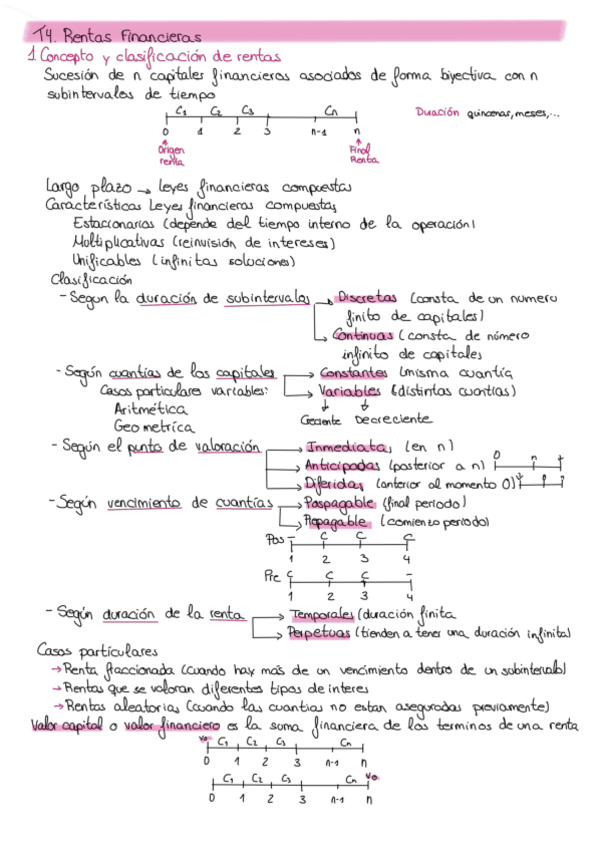 T4. Rentas Financieras
1. Concepto y clasificación de rentas
Sucesión de n capitales financieros asociados de forma biyectiva con n
subintervalos de tiempo
C1 C2 C3 Cn
0 1 2 3 n-1 n
Duación quincenas, meses,...
Origen renta
Final Renta
Largo plazo → leyes financieras compuestas
Características Leyes financieras compuestas
Estacionarias (depende del tiempo interno de la operación)
Multiplicativas (reinvisión de intereses)
Unificables (infinitas soluciones)
Clasificación
- Segun la duración de subintervalos → Discretas (consta de un numero
finito de capitales)
→ Continuas (consta de número
infinito de capitales
- Según cuantías de los capitales → Constantes (misma cuantía
Casos particulares variables: → Variables (distintas cuantías)
Aritmética
Creciente Decreciente
Geometrica
- Según el punto de valoración → Inmediatas (en n)
→ Anticipadas (posterior a n) 0 n
→ Diferidas (anterior al momento 0)
- Según vencimiento de cuantías → Pospagable (final período)
→ Prepagable (comienzo período)
Pos - C C C
1 2 3 4
Pre C C C -
1 2 3 4
- Según duración de la renta → Temporales (duración finita
→ Perpetuas (tienden a tener una duración infinita)
Casos partículares
→ Renta fraccionada (cuando hay más de un vencimiento dentro de un subintervalo)
→ Rentas que se valoran diferentes tipos de interes
→ Rentas aleatorias (cuando las cuantias no estan aseguradas previamente)
Valor capital o valor financiero es la suma financiera de los terminos de una renta
Vo C1 C2 C3 Cn
0 1 2 3 n-1 n
C1 C2 C3 Cn Vo
0 1 2 3 n-1 n